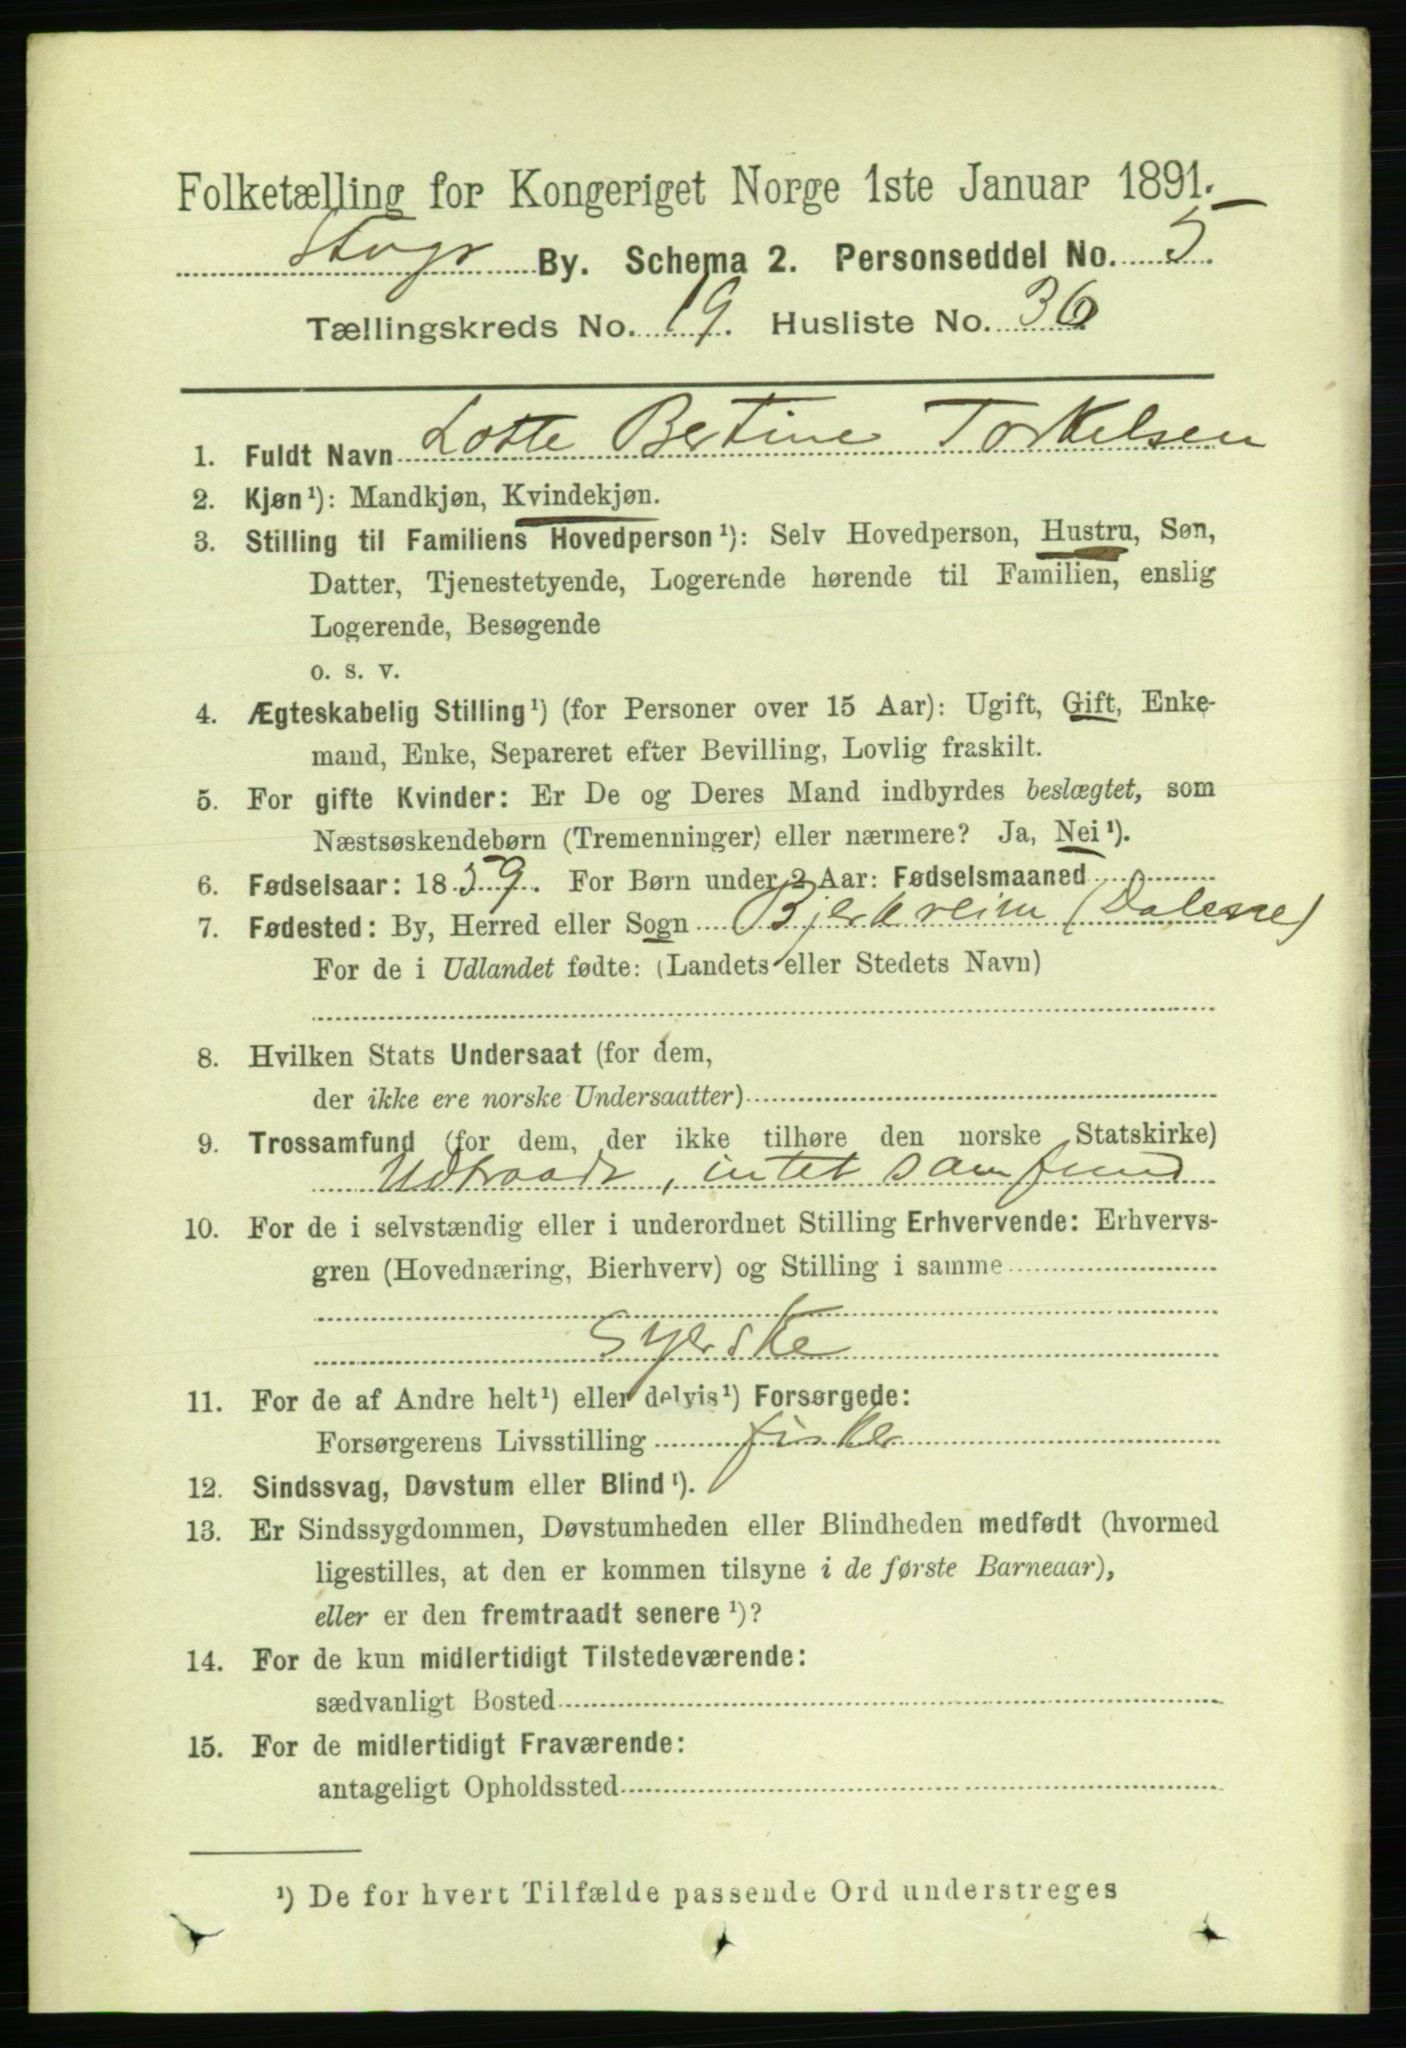 Folketælling for Kongeriget Norge 1ste Januar 1891.
Stvgr By. Schema 2. Personseddel No. 5.
Tællingskreds No. 19. Husliste No. 36
1. Fuldt Navn Lotte Bertine Torkelsen
2. Kjøn¹): Mandkjøn, Kvindekjøn.
3. Stilling til Familiens Hovedperson¹): Selv Hovedperson, Hustru, Søn,
Datter, Tjenestetyende, Logerende hørende til Familien, enslig
Logerende, Besøgende
o. s. v.
4. Ægteskabelig Stilling¹) (for Personer over 15 Aar): Ugift, Gift, Enke-
mand, Enke, Separeret efter Bevilling, Lovlig fraskilt.
5. For gifte Kvinder: Er De og Deres Mand indbyrdes beslægtet, som
Næstsøskendebørn (Tremenninger) eller nærmere? Ja, Nei¹).
6. Fødselsaar: 1859. For Børn under 2 Aar: Fødselsmaaned
7. Fødested: By, Herred eller Sogn Bjerkreim (Dalene)
For de i Udlandet fødte: (Landets eller Stedets Navn)
8. Hvilken Stats Undersaat (for dem,
der ikke ere norske Undersaatter)
9. Trossamfund (for dem, der ikke tilhøre den norske Statskirke)
Udtraadt, intet samfund
10. For de i selvstændig eller i underordnet Stilling Erhvervende: Erhvervs-
gren (Hovednæring, Bierhverv) og Stilling i samme
Syerske
11. For de af Andre helt¹) eller delvis¹) Forsørgede:
Forsørgerens Livsstilling fisker
12. Sindssvag, Døvstum eller Blind¹).
13. Er Sindssygdommen, Døvstumheden eller Blindheden medfødt (hvormed
ligestilles, at den er kommen tilsyne i de første Barneaar),
eller er den fremtraadt senere¹)?
14. For de kun midlertidigt Tilstedeværende:
sædvanligt Bosted
15. For de midlertidigt Fraværende:
antageligt Opholdssted
¹) De for hvert Tilfælde passende Ord understreges